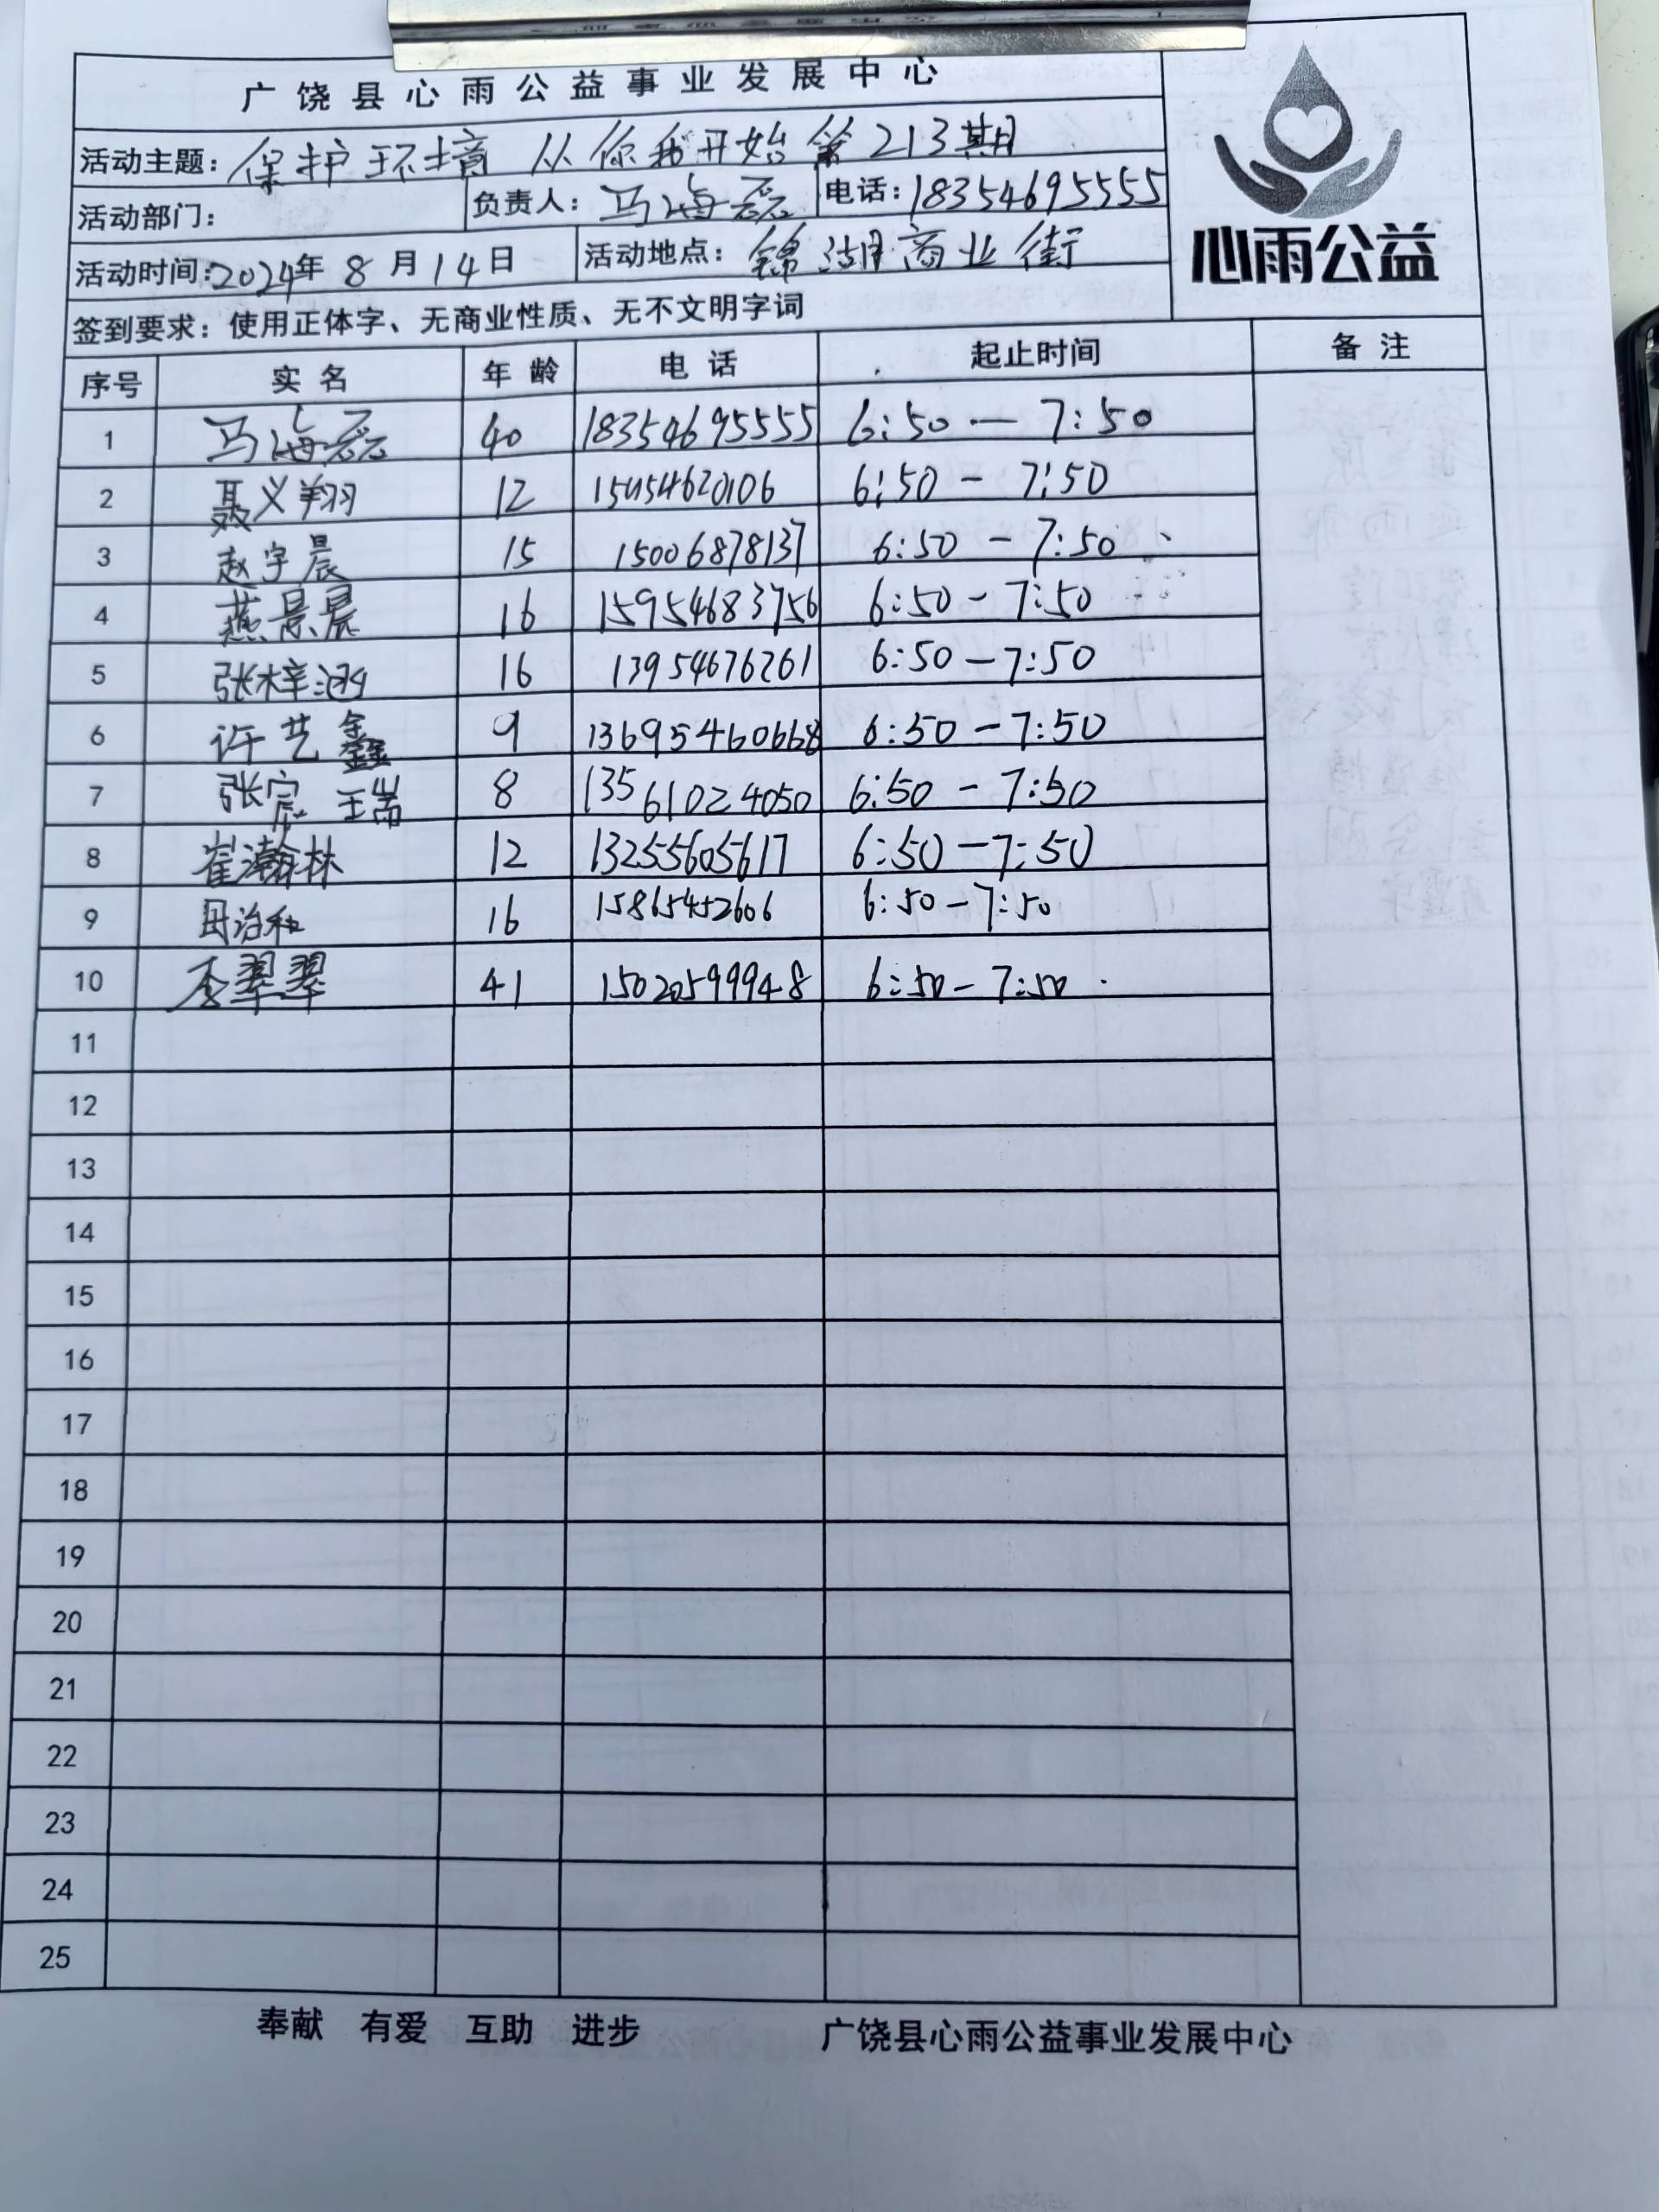 广饶县心雨公益事业发展中心
活动主题：保护环境 从你我开始第213期
活动部门： 负责人：马海磊 电话：18354695555
活动时间：2024年8月14日 活动地点：锦湖商业街
心雨公益
签到要求：使用正体字、无商业性质、无不文明字词
序号 实名 年龄 电话 起止时间 备注
1 马海磊 40 18354695555 6:50 — 7:50
2 聂义翔 12 15454620106 6:50 - 7:50
3 赵宇晨 15 15006878137 6:50 - 7:50
4 燕景晨 16 15954683756 6:50 - 7:50
5 张梓涵 16 13954676261 6:50 - 7:50
6 许艺鑫 9 13695460668 6:50 - 7:50
7 张宸瑞 8 13561024050 6:50 - 7:50
8 崔瀚林 12 13255605617 6:50 - 7:50
9 16 15865452606 6:50 - 7:50
10 李翠翠 41 15020599948 6:50 - 7:50
11
12
13
14
15
16
17
18
19
20
21
22
23
24
25
奉献 有爱 互助 进步 广饶县心雨公益事业发展中心